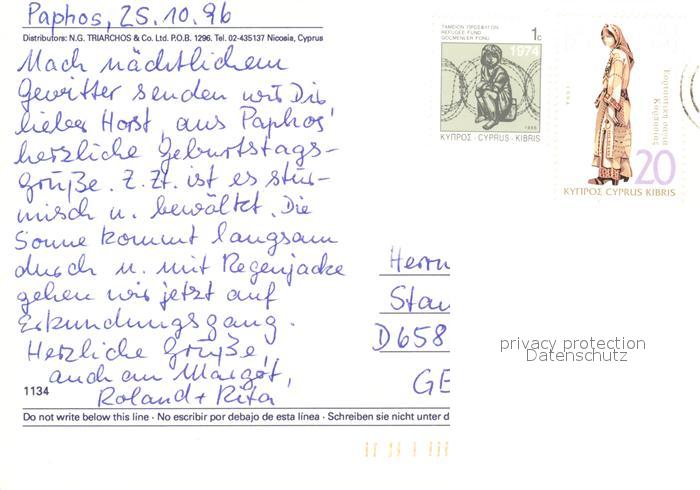 Paphos, 25.10.96
Distributors: N.G. TRIARCHOS & Co. Ltd. P.O.B. 1296. Tel. 02-435137 Nicosia, Cyprus
Nach nächtlichem
Gewitter senden wir Dir
lieber Horst, aus Paphos
herzliche Geburtstags-
grüße. Z.Zt. ist es stür-
misch u. bewölkt. Die
Sonne kommt langsam
durch u. mit Regenjacke
gehen wir jetzt auf
Erkundungsgang.
Herzliche Grüße,
auch an Margot,
Roland + Rita
1134
Do not write below this line · No escribir por debajo de esta línea · Schreiben sie nicht unter d
ΤΑΜΕΙΟΝ ΠΡΟΣΦΥΓΩΝ
REFUGEE FUND
GÖÇMENLER FONU
1c
1974
1995
ΚΥΠΡΟΣ · CYPRUS · KIBRIS
1994
Εορταστική σαγιά
Καρπασίας
20
ΚΥΠΡΟΣ CYPRUS KIBRIS
Herrn
Stau
D658
GE
privacy protection
Datenschutz